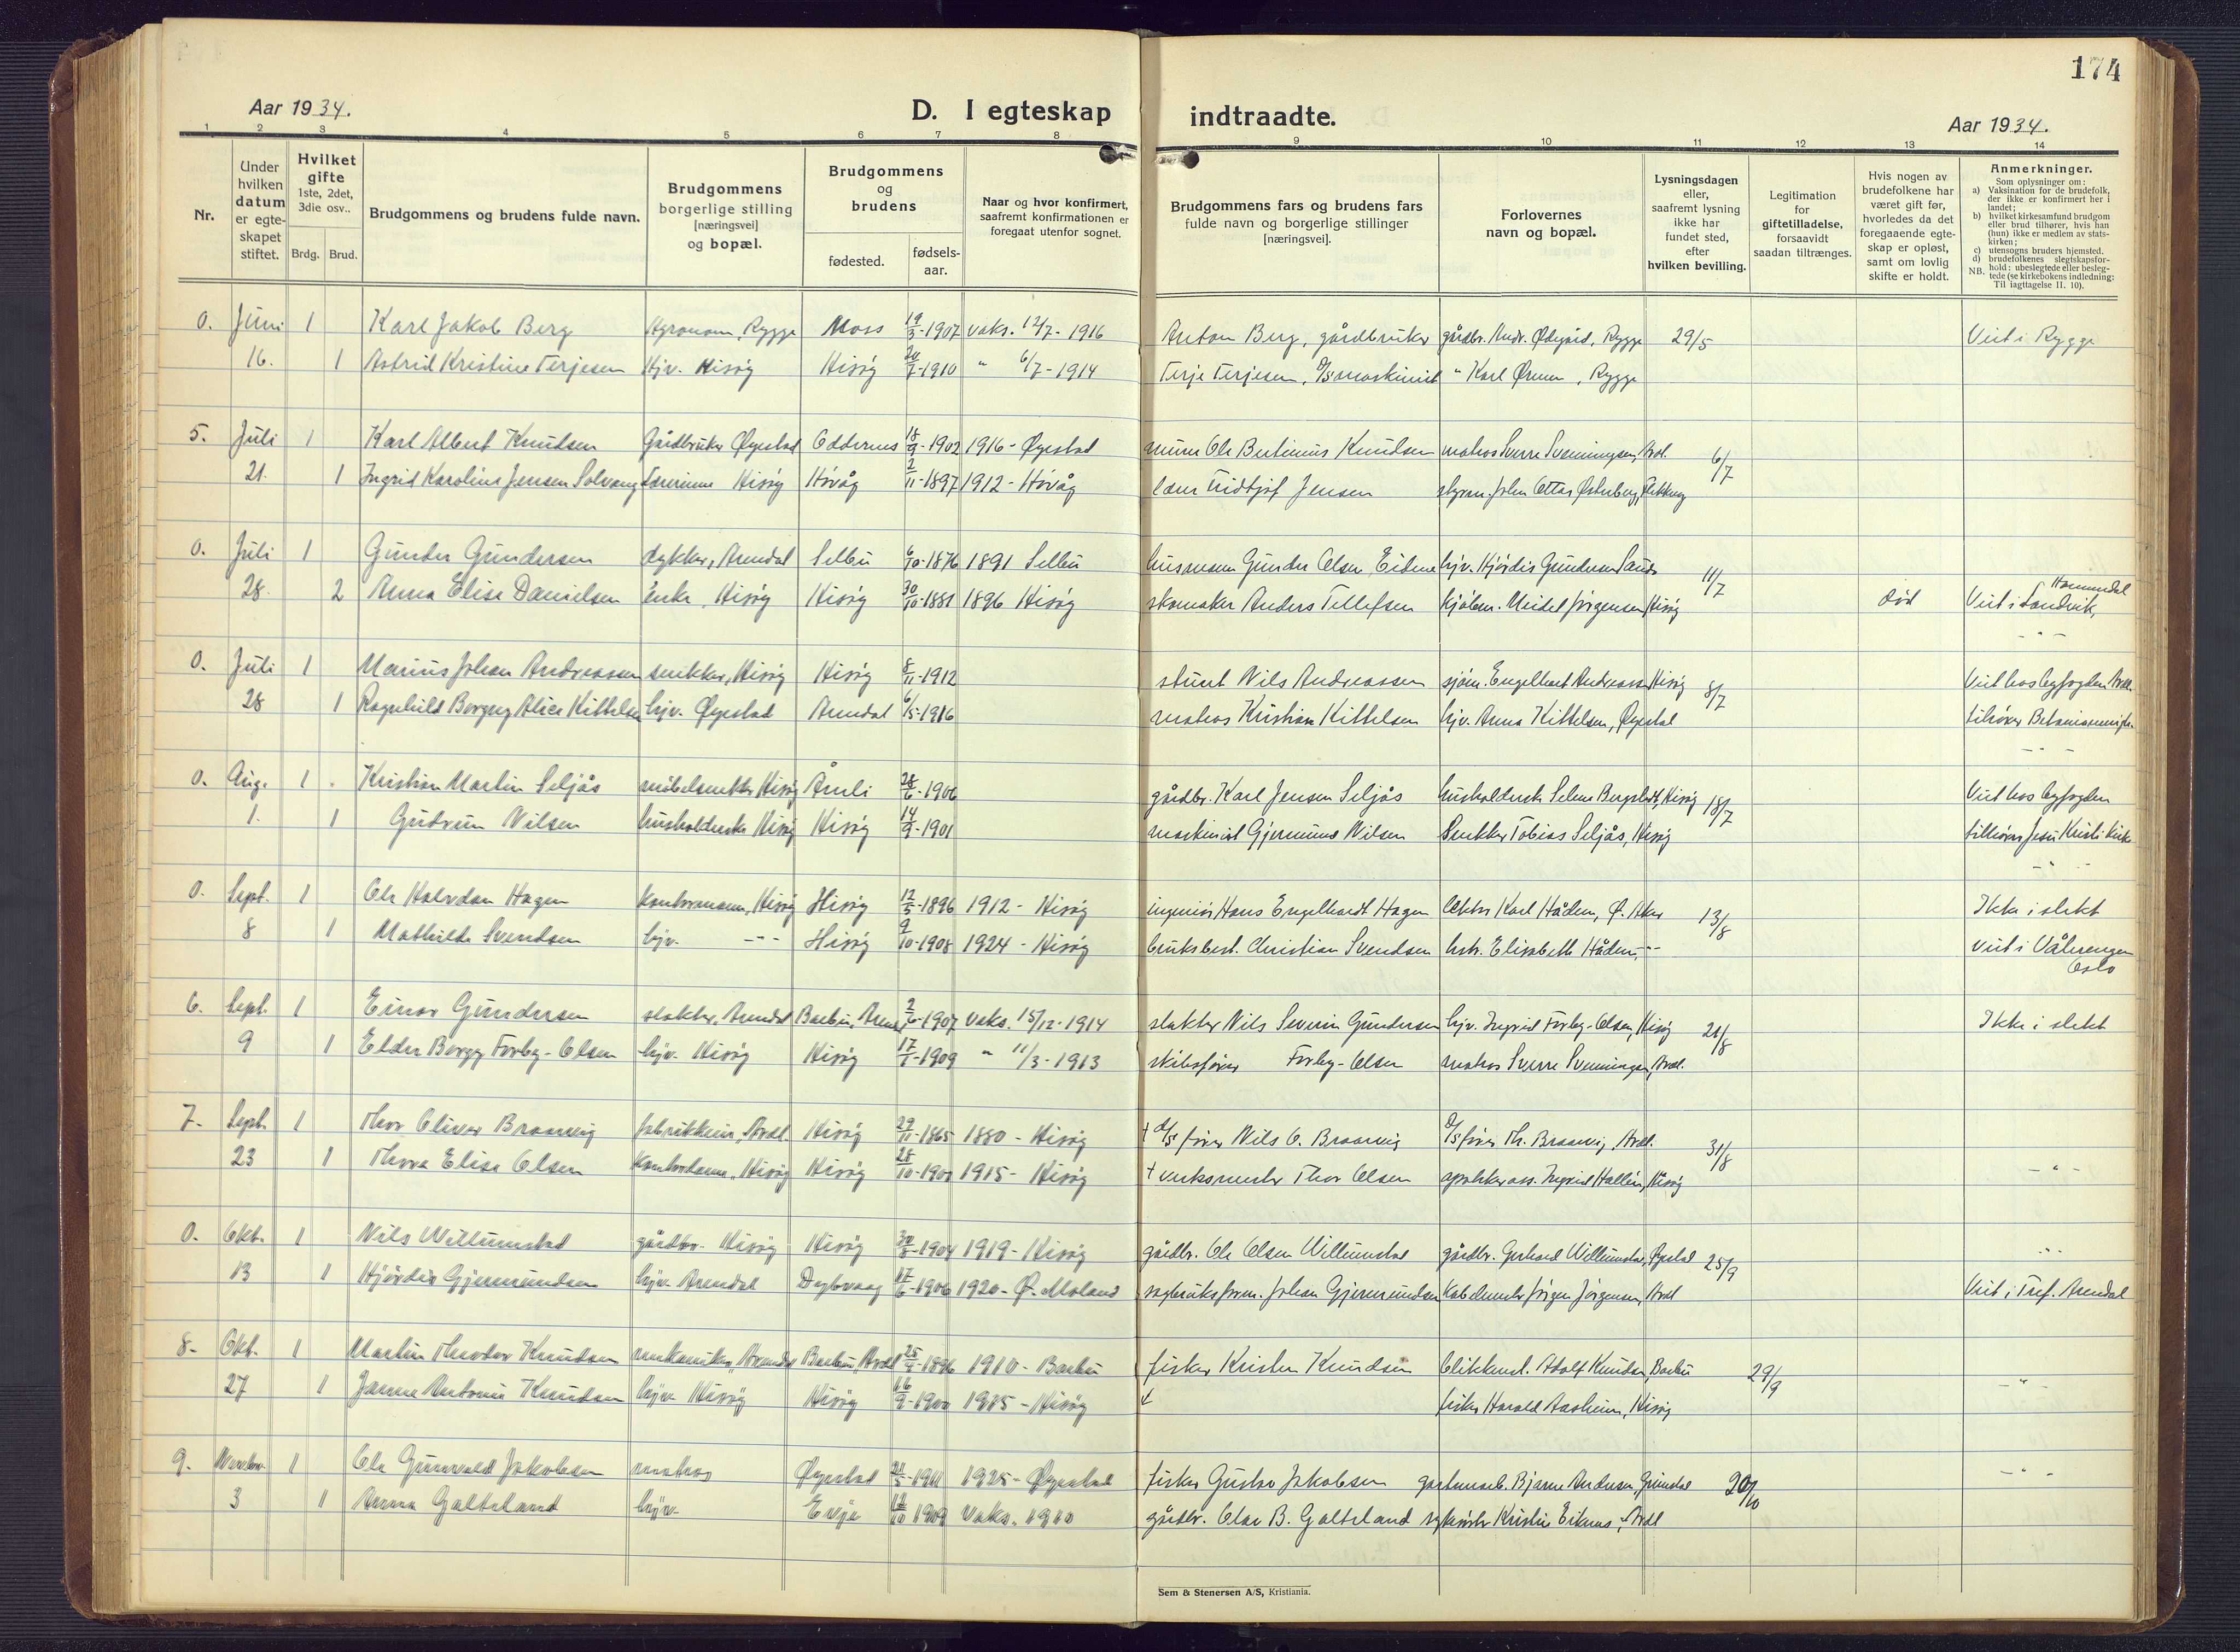 174
Aar 1934.
D. I egteskap indtraadte.
Aar 1934.
1 2 3 4 5 6 7 8 9 10 11 12 13 14
Nr.
Under hvilken datum er egteskapet stiftet.
Hvilket gifte 1ste, 2det, 3die osv..
Brdg. Brud.
Brudgommens og brudens fulde navn.
Brudgommens borgerlige stilling [næringsvei] og bopæl.
Brudgommens og brudens
fødested.
fødselsaar.
Naar og hvor konfirmert, saafremt konfirmationen er foregaat utenfor sognet.
Brudgommens fars og brudens fars fulde navn og borgerlige stillinger [næringsvei].
Forlovernes navn og bopæl.
Lysningsdagen eller, saafremt lysning ikke har fundet sted, efter hvilken bevilling.
Legitimation for giftetilladelse, forsaavidt saadan tiltrænges.
Hvis nogen av brudefolkene har været gift før, hvorledes da det foregaaende egteskap er opløst, samt om lovlig skifte er holdt.
Anmerkninger.
Som oplysninger om:
a) Vaksination for de brudefolk, der ikke er konfirmert her i landet;
b) hvilket kirkesamfund brudgom eller brud tilhører, hvis han (hun) ikke er medlem av statskirken;
c) utensogns bruders hjemsted.
d) brudefolkenes slegtskapsforhold: ubeslegtede eller beslegtede (se kirkebokens indledning: Til iagttagelse II. 10).
NB.
0. Juni 1 Karl Jakob Berg Agronom, Rygge Moss 19/3-1907 vaks. 12/7-1916 Anton Berg, gårdbruker gårdbr. Andr. Ødegård, Rygge 29/5 Viet i Rygge
16. 1 Astrid Kristine Terjesen Hjv. Hisöy Hisöy 1910 " 6/7-1914 Terje Terjesen, D/S maskinist " Karl , Rygge
5. Juli 1 Karl Albert Knudsen Gårdbruker Øyestad Oddernes 18/9-1902 1916-Øyestad murer Ole Bertinius Knudsen matros Sverre Svenningsen, Ardl. 6/7
21. 1 Ingrid Karoline Jensen Solvang Lærerinne Hisöy Hövåg 2/11-1897 1912-Hövåg lærer Fridtjof Jensen styrm. John Ottar Østerberg,
0. Juli 1 Gunder Gundersen dykker, Arendal Selbu 6/10-1876 1891 Selbu husmann Gunder Olsen Eidem hjv. Hjördis Gundersen 11/7
28. 2 Anna Elise Danielsen enke, Hisöy Hisöy 30/10-1881 1896 Hisöy skomaker Anders Tellefsen Jörgensen Hisöy död Viet i Sandvik, Hommedal
- " -
0. Juli 1 Marius Johan Andreassen snekker, Hisöy Hisöy 8/11-1912 stuert Nils Andreassen sjöm. Engelhart Andreassen Hisöy 8/7 Viet hos byfogden Ardl.
28 1 Ragnhild Borgny Alice Kittelsen hjv. Øyestad Arendal 6/5-1916 matros Kristian Kittelsen hjv. Anna Kittelsen, Øyestad tilhörer
- " -
0. Aug. 1 Kristian Martin Seljås möbelsnekker Hisöy Åmli 28/6-1906 gårdbr. Karl Jensen Seljås husholderske Selma Bergstedt, Hisöy 18/7 Viet hos byfogden
1. 1 Gudrun Nilsen husholderske Hisöy Hisöy 14/9-1901 maskinist Gjermund Nilsen Snekker Tobias Seljås, Hisöy tilhörer Jesu Kristi Kirke
- " -
0. Sept. 1 Ole Halvdan Hagen Kontormann, Hisöy Hisöy 12/5-1896 1912-Hisöy ingeniör Hans Engelhardt Hagen Karl Håden, Ø. Aker 13/8 Ikke i slekt
8 1 Mathilde Svendsen hjv. - " - Hisöy 9/10-1908 1924-Hisöy bruksbest. Christian Svendsen hstr. Elisabeth Håden, - " - viet i Vålerengen Oslo
6. Sept. 1 Einar Gundersen slakter, Arendal Barbu, Arendal 2/6-1907 vaks. 15/12-1914 slakter Nils Severin Gundersen hjv. Ingrid Forby-Olsen, Hisöy 21/8 Ikke i slekt
9 1 Forby-Olsen hjv. Hisöy Hisöy 17/1-1909 " 11/3-1913 skibsförer Forby-Olsen matros Sverre Svenningsen, Ardl.
7. Sept. 1 Thor Oliver Braarvig fabrikkeier, Ardl. Hisöy 29/11-1865 1880-Hisöy † D/S förer Nils O. Braarvig D/S förer Th. Braarvig, Ardl. 31/8
23 1 Thora Elise Olsen Kontordame, Hisöy Hisöy 28/10-1900 1915-Hisöy † verksmester Thor Olsen apotekerass. Ingrid Hallén, Hisöy - " -
0. Okt. 1 Nils Willumstad gårdbr. Hisöy Hisöy 30/8-1904 1919-Hisöy gårdbr. Ole Olsen Willumstad gårdbr. Gerhard Willumstad, Øyestad 25/9 - " -
13 1 Hjördis Gjermundsen hjv. Arendal Dypvaag 17/6-1906 1920-Ø. Moland sagbruksform. Johan Gjermundsen Jörgen Jörgensen, Ardl Viet i Tref. Arendal
8. Okt. 1 Martin Theodor Knudsen mekaniker, Arendal Barbu, Ardl 1896 1910-Barbu fisker Kristen Knudsen blikkensl. Adolf Knudsen, Barbu 29/9
27 1 Janna Antonie Knudsen hjv. Hisöy Hisöy 16/9-1900 1915-Hisöy fisker Harald Aasheim, Hisöy - " -
9. Novbr. 1 Ole Gunvald Jakobsen matros Øyestad 21/5-1911 1925-Øyestad fisker Gustav Jakobsen gartnerarb. Bjarne Andersen, Grimstad 20/10 - " -
3 1 Anna Galteland hjv. Evje 1909 vaks. 1910 gårdbr. Olav B. Galteland Kristine Eikenes, Ardl
Sem & Stenersen A/S, Kristiania.